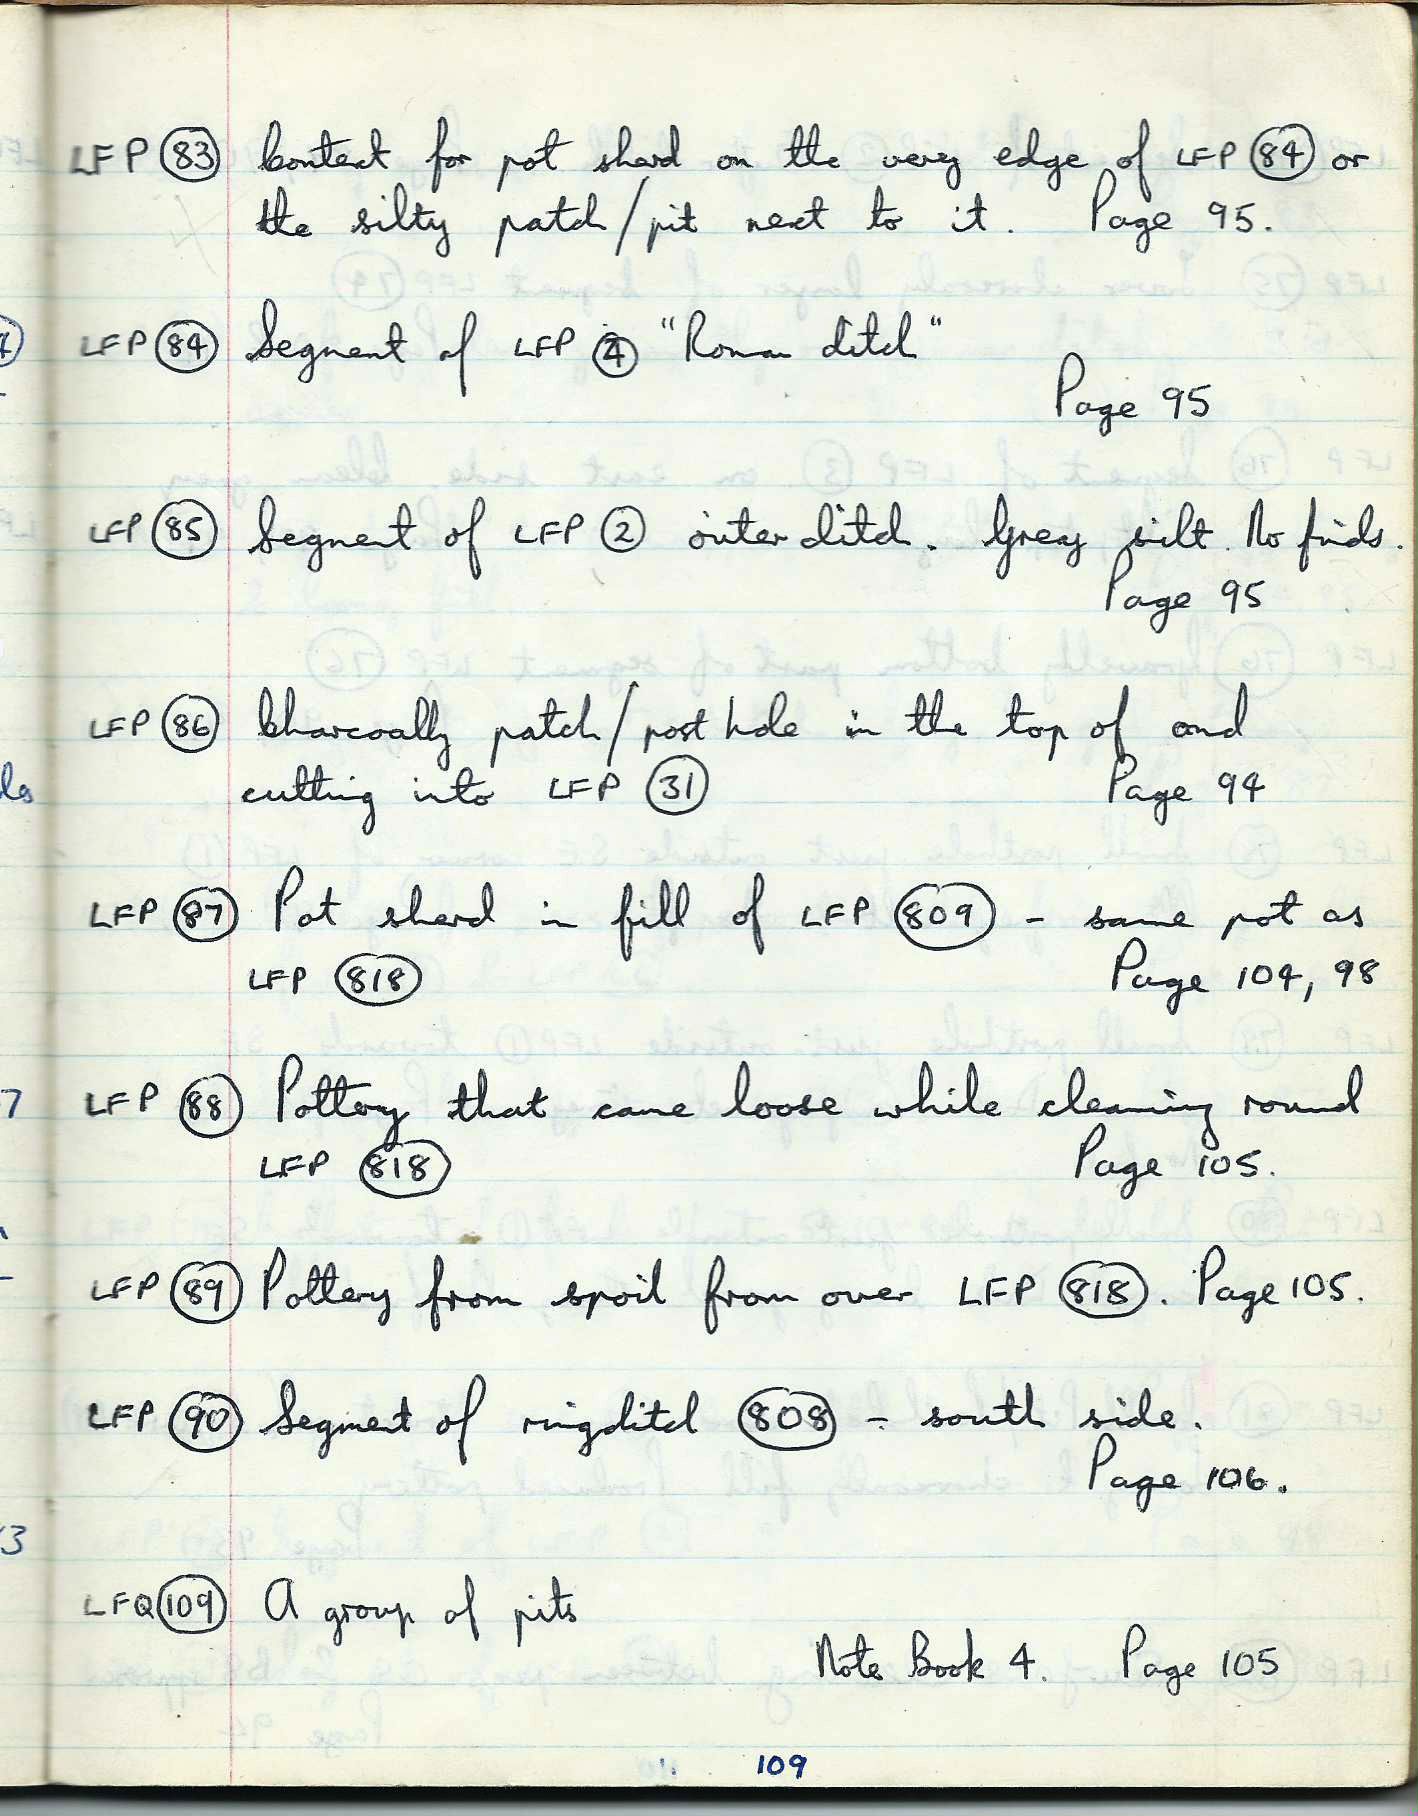 LFP 83 Context for pot sherd on the very edge of LFP 84 or
the silty patch/pit next to it. Page 95.
LFP 84 Segment of LFP 4 "Roman ditch"
Page 95
LFP 85 Segment of LFP 2 outer ditch. Grey silt. No finds.
Page 95
LFP 86 Charcoally patch/post hole in the top of and
cutting into LFP 31 Page 94
LFP 87 Pot sherd in fill of LFP 809 - same pot as
LFP 818 Page 104, 98
LFP 88 Pottery that came loose while cleaning round
LFP 818 Page 105.
LFP 89 Pottery from spoil from over LFP 818. Page 105.
LFP 90 Segment of ringditch 808 - south side.
Page 106.
LFQ 109 A group of pits
Note Book 4. Page 105
109